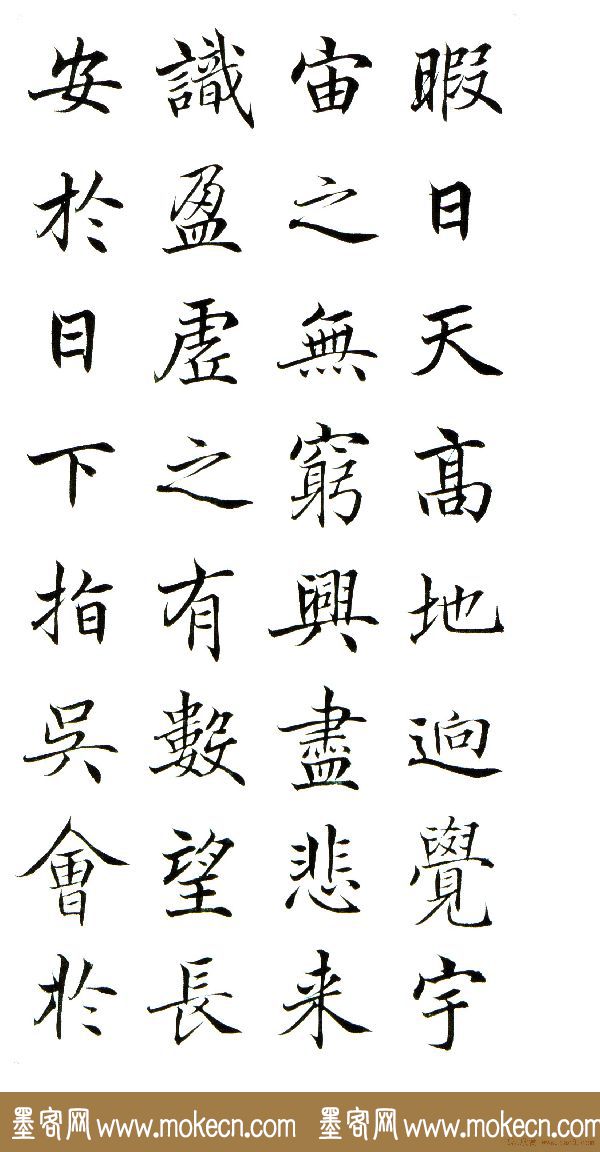 暇日天高地逈覺宇
宙之無窮興盡悲来
識盈虛之有數望長
安於日下指吳會於
墨客网 www.mokecn.com 墨客网 www.mokecn.com